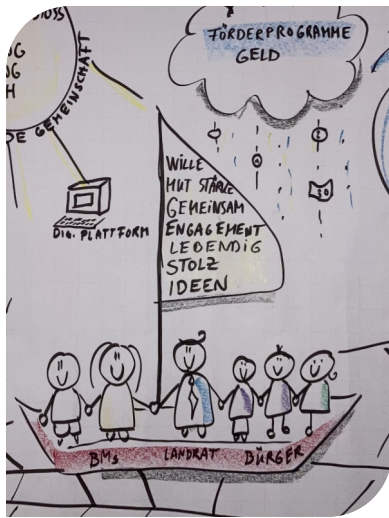 FÖRDERPROGRAMME
GELD
DE GEMEINSCHAFT
DIG. PLATTFORM
WILLE
MUT STÄRKE
GEMEINSAM
ENGAGEMENT
LEBENDIG
STOLZ
IDEEN
BMs LANDRAT BÜRGER